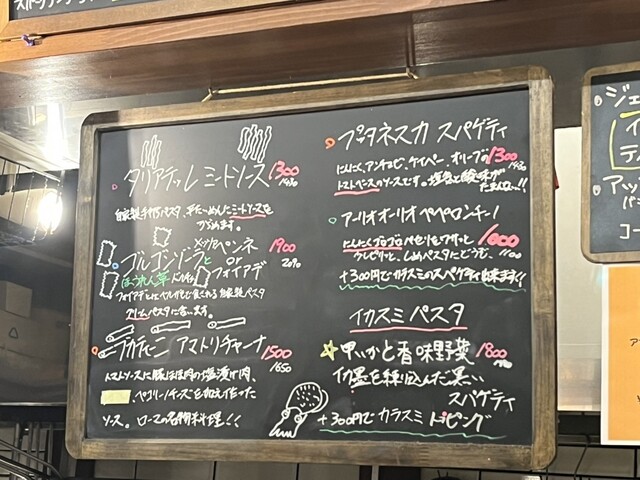 タリアテッレ ミートソース 1300
1430
自家製手打パスタ、平たいめんにミートソースを
からめます。
ゴルゴンゾーラと ペンネ 1900
or 2090
ほうれん草 フォイアデ
フォイアデとはミルガで食べられる自家製パスタ
クリームパスタに合います。
ブカティーニ アマトリチャーナ 1500
1650
トマトソースに豚ほほ肉の塩漬け肉、
ペコリーノチーズを加え作った
ソース。ローマの名物料理!!
プッタネスカ スパゲティ
にんにく、アンチョビ、ケイパー、オリーブの 1300
1430
トマトベースのソースです。塩気と酸味が
たまらない!!
アーリオオーリオ ペペロンチーノ
にんにくゴロゴロ パセリをワサッと 1000
1100
クルピリッと、しめパスタにどうぞ、
+300円でカラスミのスパゲティ出来ます!!
イカスミパスタ
甲いかと香味野菜 1800
イカ墨を練り込んだ黒い
スパゲティ
+300円でカラスミトッピング